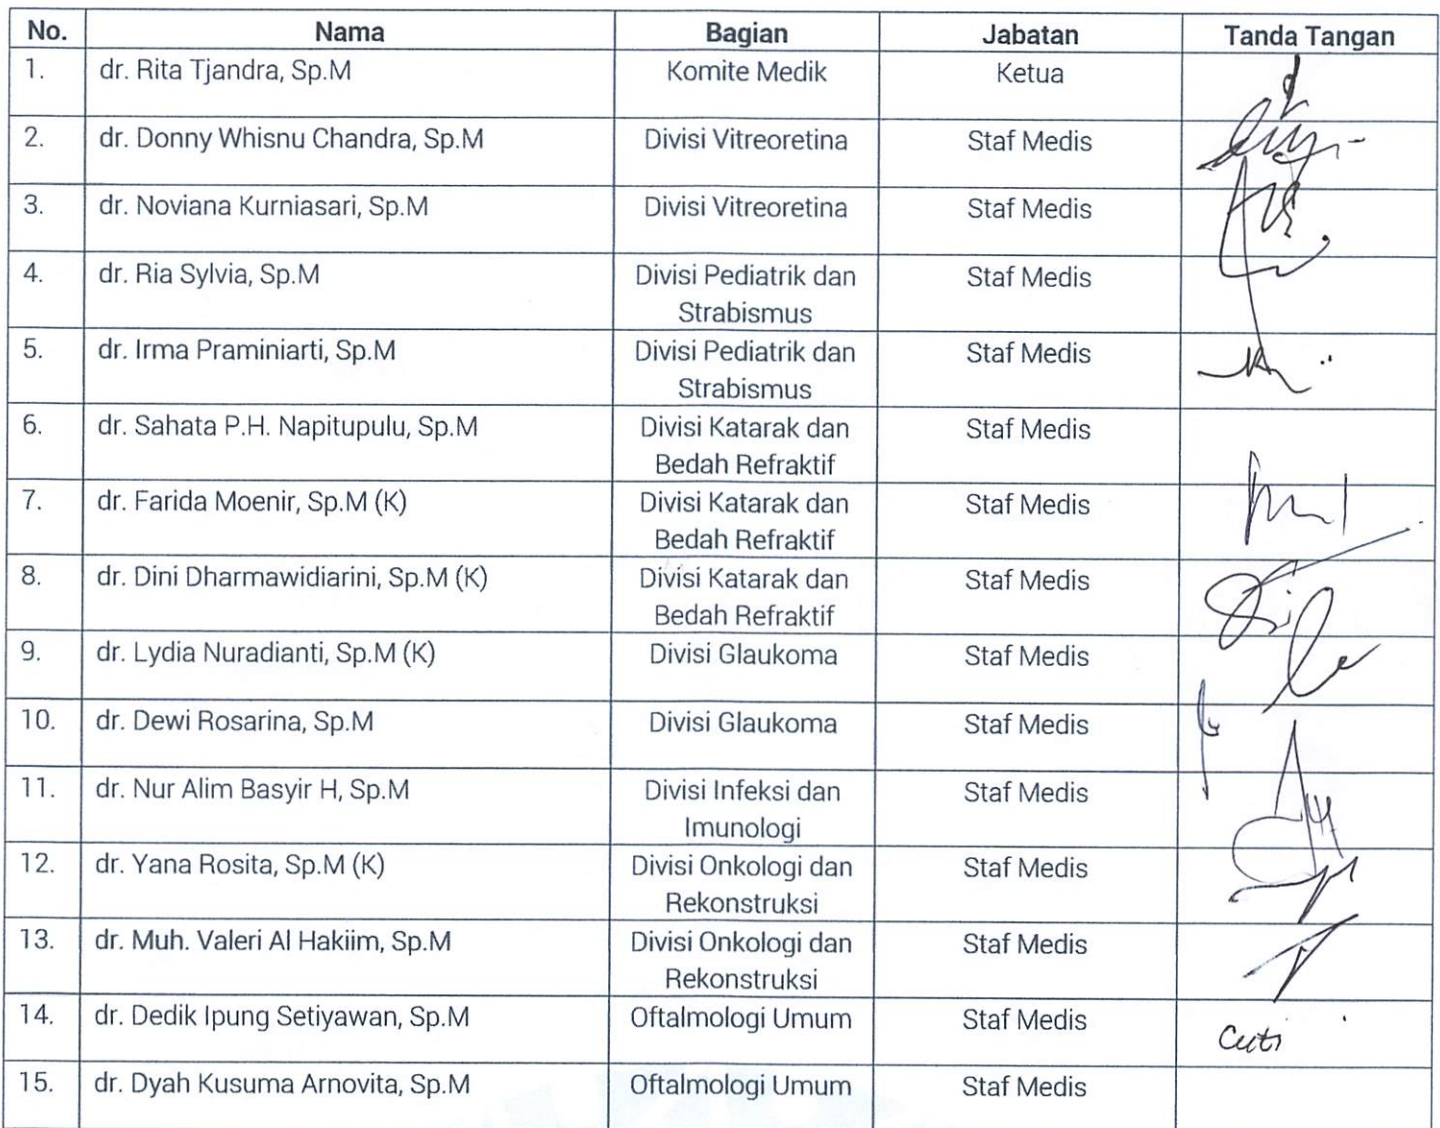 No. Nama Bagian Jabatan Tanda Tangan
1. dr. Rita Tjandra, Sp.M Komite Medik Ketua
2. dr. Donny Whisnu Chandra, Sp.M Divisi Vitreoretina Staf Medis
3. dr. Noviana Kurniasari, Sp.M Divisi Vitreoretina Staf Medis
4. dr. Ria Sylvia, Sp.M Divisi Pediatrik dan Staf Medis
Strabismus
5. dr. Irma Praminiarti, Sp.M Divisi Pediatrik dan Staf Medis
Strabismus
6. dr. Sahata P.H. Napitupulu, Sp.M Divisi Katarak dan Staf Medis
Bedah Refraktif
7. dr. Farida Moenir, Sp.M (K) Divisi Katarak dan Staf Medis
Bedah Refraktif
8. dr. Dini Dharmawidiarini, Sp.M (K) Divisi Katarak dan Staf Medis
Bedah Refraktif
9. dr. Lydia Nuradianti, Sp.M (K) Divisi Glaukoma Staf Medis
10. dr. Dewi Rosarina, Sp.M Divisi Glaukoma Staf Medis
11. dr. Nur Alim Basyir H, Sp.M Divisi Infeksi dan Staf Medis
Imunologi
12. dr. Yana Rosita, Sp.M (K) Divisi Onkologi dan Staf Medis
Rekonstruksi
13. dr. Muh. Valeri Al Hakiim, Sp.M Divisi Onkologi dan Staf Medis
Rekonstruksi
14. dr. Dedik Ipung Setiyawan, Sp.M Oftalmologi Umum Staf Medis Cuti
15. dr. Dyah Kusuma Arnovita, Sp.M Oftalmologi Umum Staf Medis